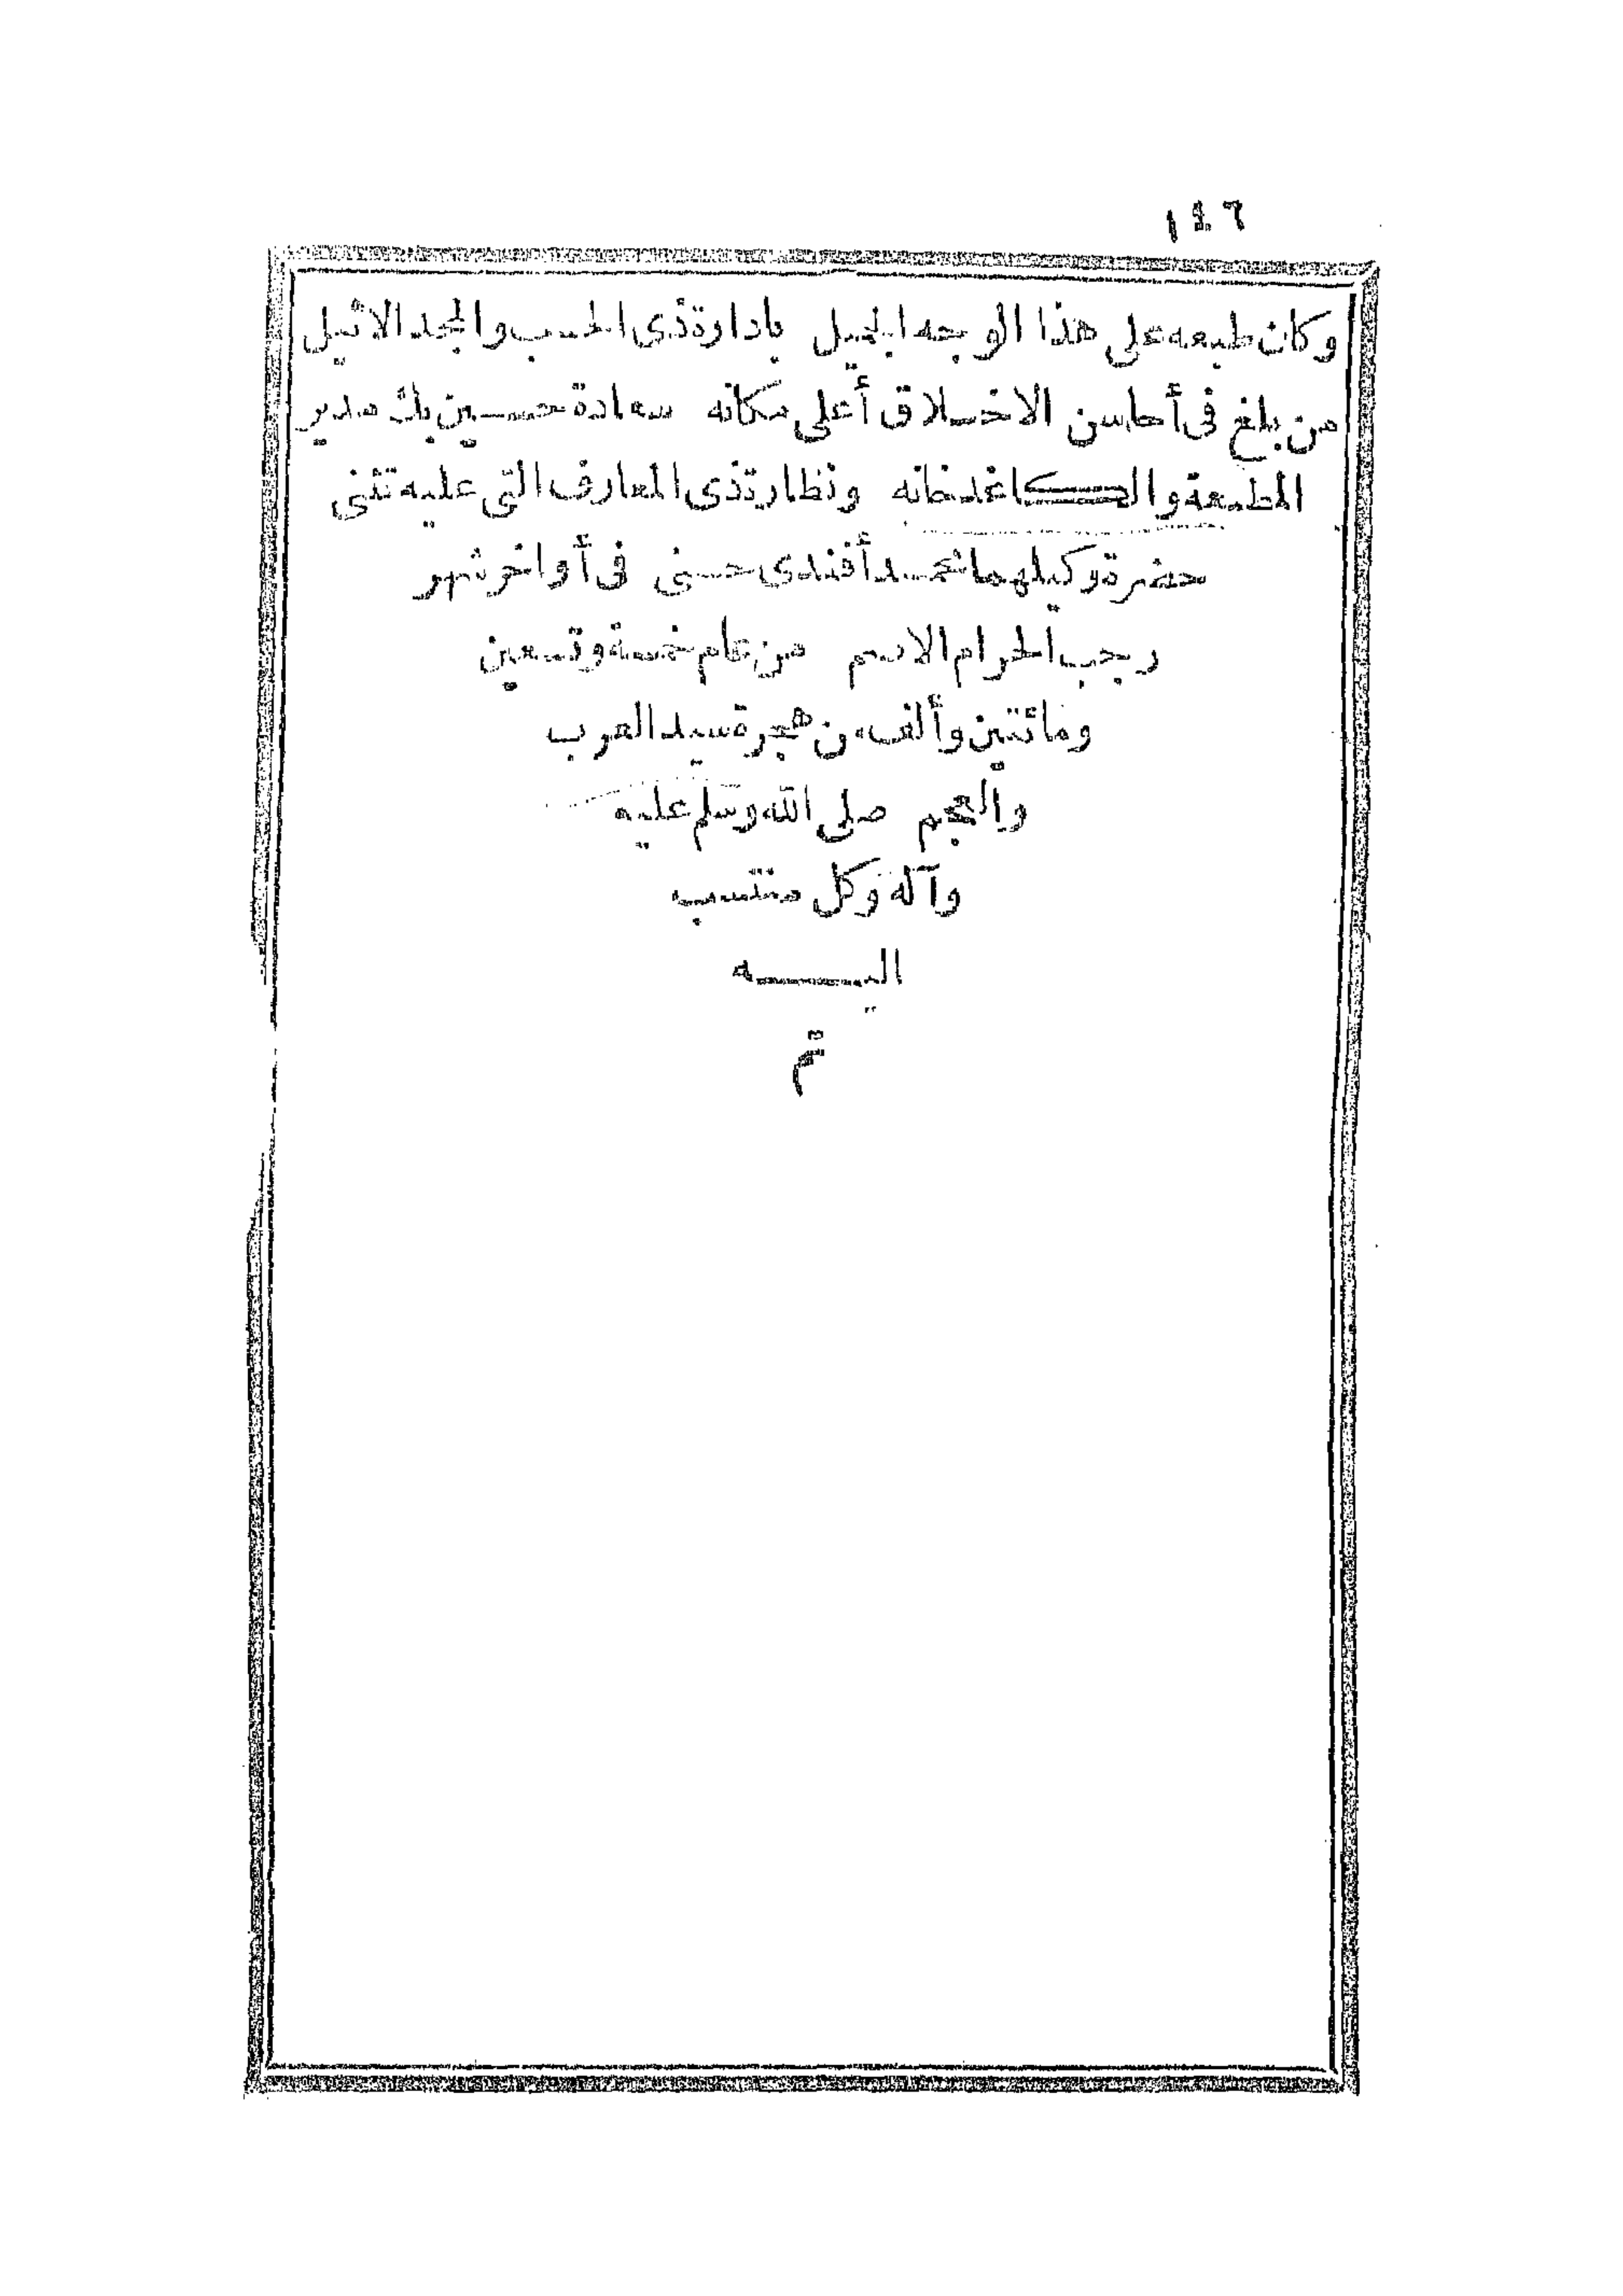 ١٤٦
وكان طبعه على هذا الوجه الجميل بادارة ذى الحسب والمجد الاثيل
من بلغ فى أحاسن الاخلاق أعلى مكانه سعادة حسين بك مدير
المطبعة والكاغدخانه ونظارة ذى المعارف التى عليه تثنى
حضرة وكيلهما محمد أفندى حسنى فى أواخر شهر
رجب الحرام الاصم من عام خمسة وتسعين
ومائتين وألف من هجرة سيد العرب
والعجم صلى الله وسلم عليه
وآله وكل منتسب
اليه
تم